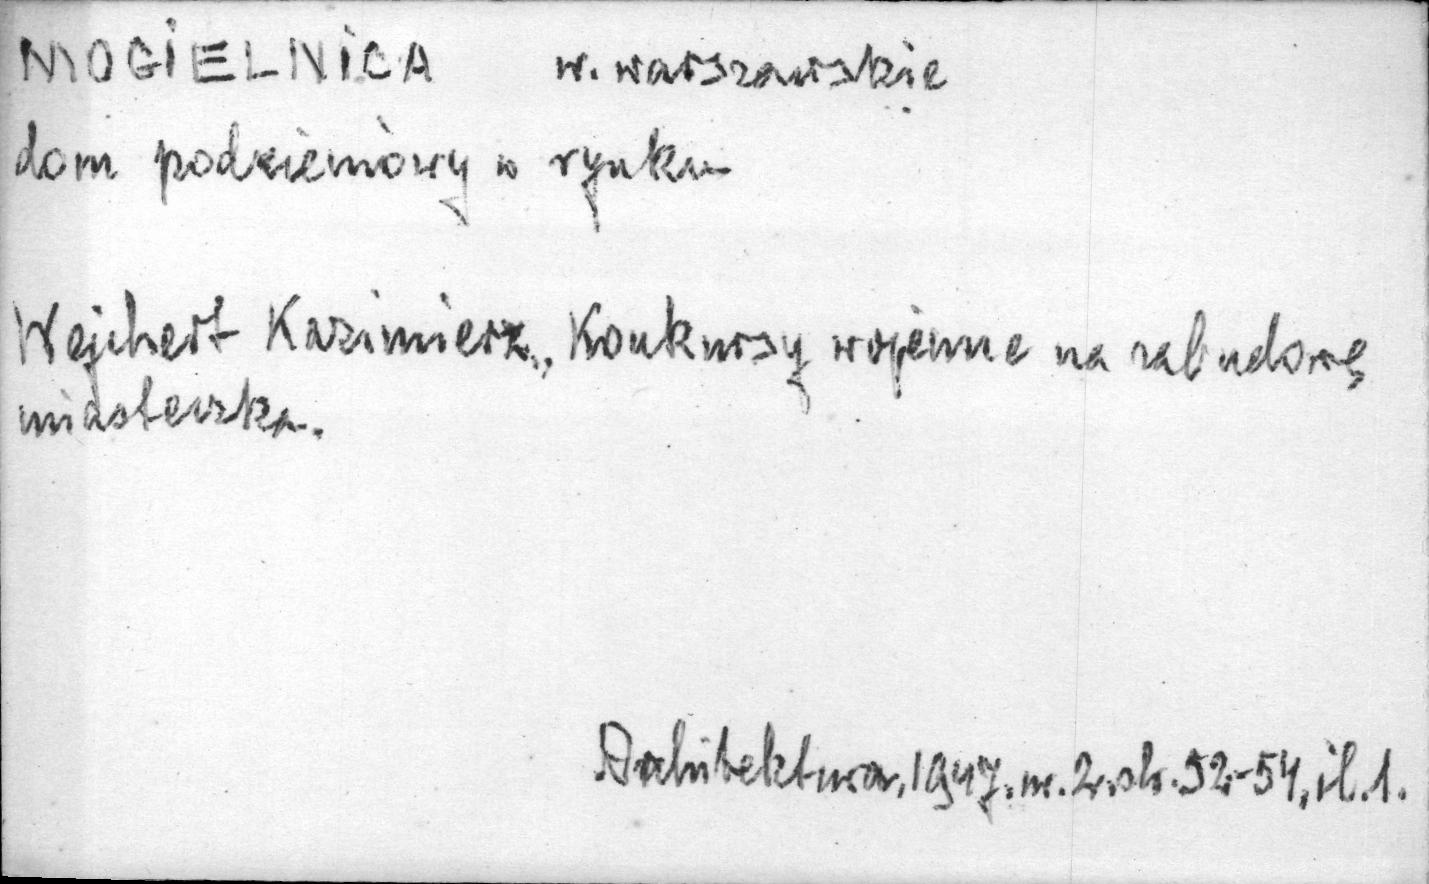 MOGIELNICA w. warszawskie
dom podcieniowy w rynku
Wejchert Kazimierz, Konkursy wojenne na zabudowę
miasteczka.
Architektura, 1947. nr. 2. str. 52-54, il. 1.